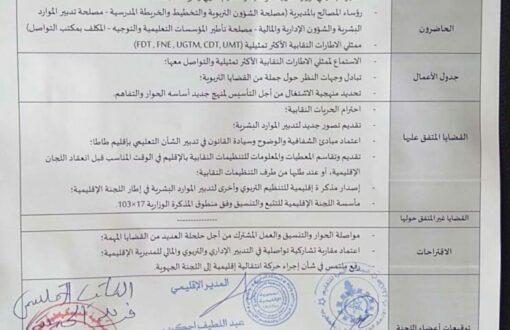 - رؤساء المصالح بالمديرية (مصلحة الشؤون التربوية والتخطيط والخريطة المدرسية - مصلحة تدبير الموارد
البشرية والشؤون الإدارية والمالية - مصلحة تأطير المؤسسات التعليمية والتوجيه - المكلف بمكتب التواصل)
- ممثلي الاطارات النقابية الأكثر تمثيلية (FDT , FNE, UGTM, CDT, UMT)
الحاضرون
- الاستماع لممثلي الاطارات النقابية الأكثر تمثيلية والتواصل معها؛
- تبادل وجهات النظر حول جملة من القضايا التربوية؛
- تحديد منهجية الاشتغال من أجل التأسيس لمنهج جديد أساسه الحوار والتفاهم.
جدول الأعمال
- احترام الحريات النقابية؛
- تقديم تصور جديد لتدبير الموارد البشرية؛
- اعتماد مبادئ الشفافية والوضوح وسيادة القانون في تدبير الشأن التعليمي بإقليم طاطا؛
- تقديم وتقاسم المعطيات والمعلومات للتنظيمات النقابية بالإقليم في الوقت المناسب قبل انعقاد اللجان
الإقليمية، أو عند طلبها من طرف التنظيمات النقابية؛
- إصدار مذكرة إقليمية للتنظيم التربوي وأخرى لتدبير الموارد البشرية في إطار اللجنة الإقليمية؛
- مأسسة اللجنة الإقليمية للتتبع والتنسيق وفق منطوق المذكرة الوزارية 17×103.
القضايا المتفق عليها
القضايا غير المتفق حولها
- مواصلة الحوار والتنسيق والعمل المشترك من أجل حلحلة العديد من القضايا المهمة؛
- اعتماد مقاربة تشاركية تواصلية في التدبير الإداري والتربوي والمالي للمديرية الإقليمية؛
- رفع ملتمس في شأن إجراء حركة انتقالية إقليمية إلى اللجنة الجهوية.
الاقتراحات
المدير الإقليمي
عبد اللطيف
توقيعات أعضاء اللجنة